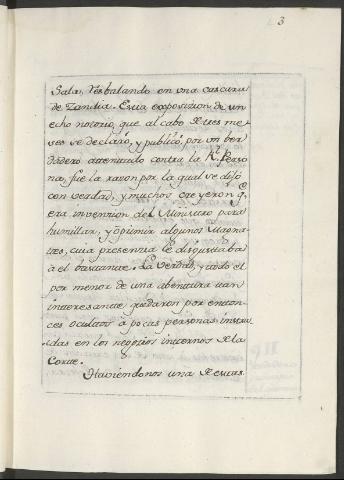 3
Sala, resbalando en una cascara
de Zandia. Esta exposicion de un
echo notorio, que al cabo de tres me-
ses se declaró, y publicó, por un ber
dadero attentado contra la Rl. Perso
na, fue la razon por la qual se dijo
con verdad, y muchos creyeron q.
era invencion del Ministro para
humillar, y oprimir algunos Magna
tes, cuia presencia le disgustaba
à el bastante. La verdad, y todo el
por menor de una abentura tan
interesante quedaron por enton-
ces ocultos à pocas personas instrui
das en los negocios internos de la
Corte.
Haviendonos una de estas